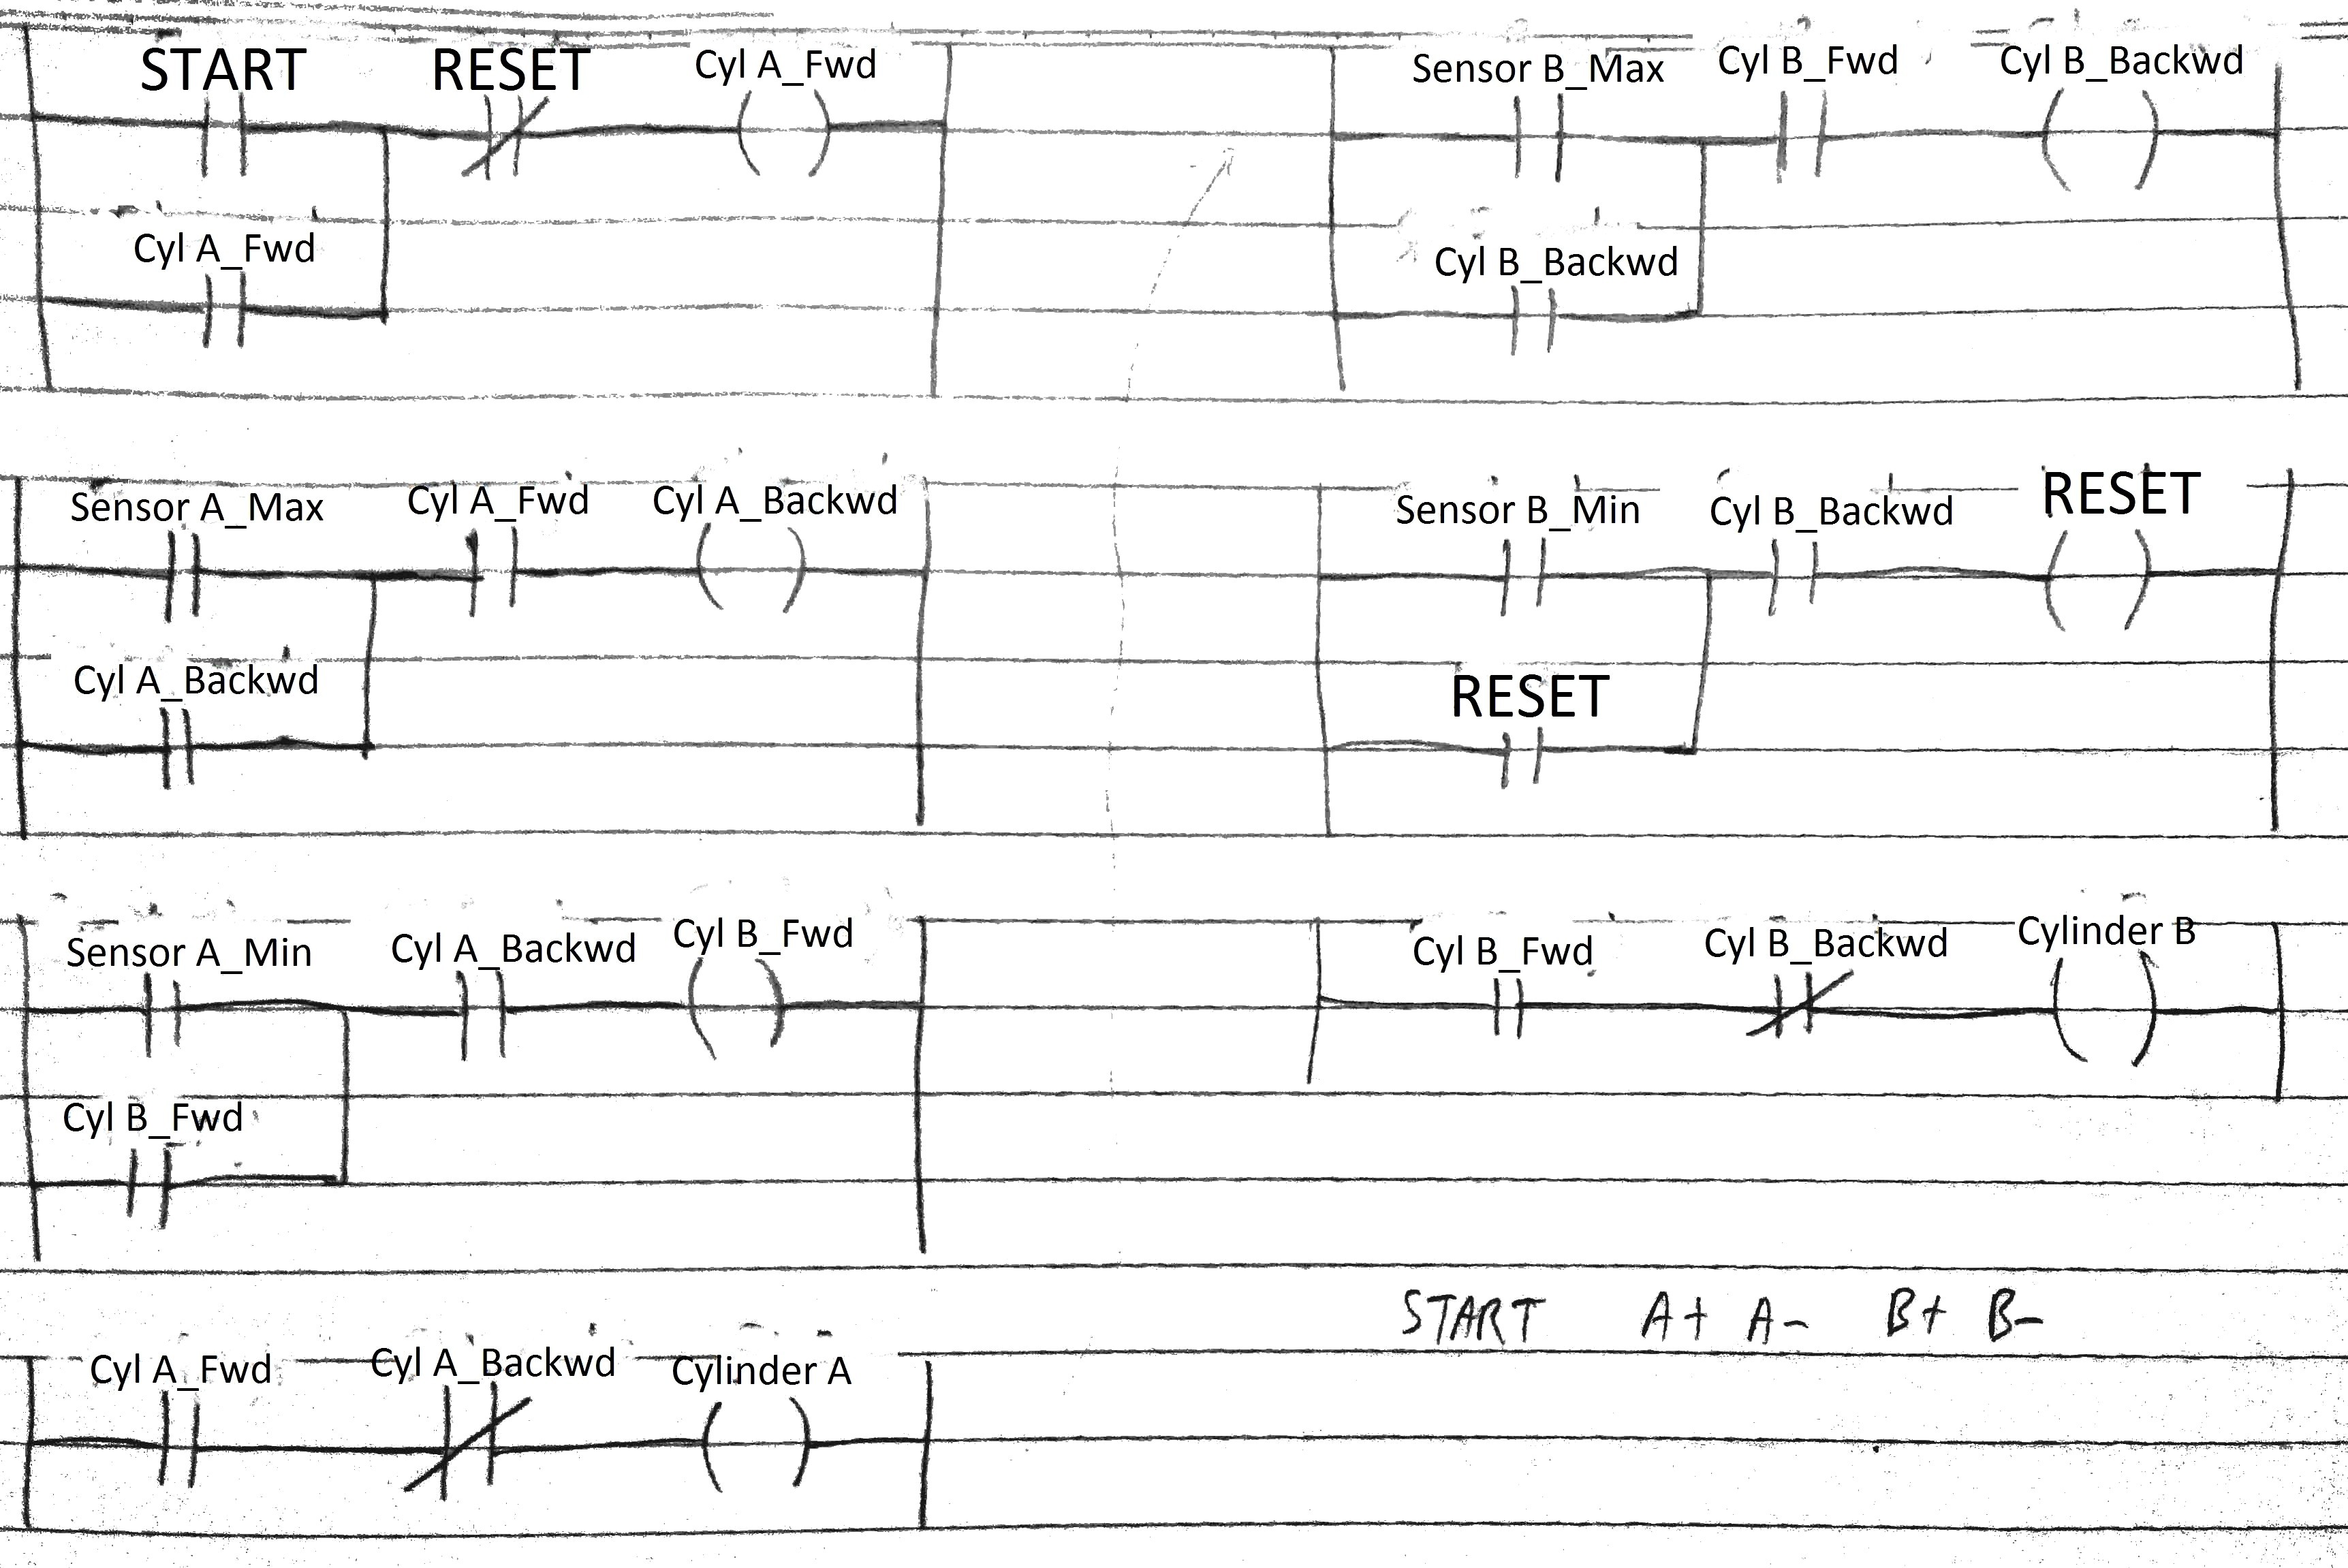 START RESET Cyl A_Fwd
Cyl A_Fwd
Sensor A_Max Cyl A_Fwd Cyl A_Backwd
Cyl A_Backwd
Sensor A_Min Cyl A_Backwd Cyl B_Fwd
Cyl B_Fwd
Cyl A_Fwd Cyl A_Backwd Cylinder A
Sensor B_Max Cyl B_Fwd Cyl B_Backwd
Cyl B_Backwd
Sensor B_Min Cyl B_Backwd RESET
RESET
Cyl B_Fwd Cyl B_Backwd Cylinder B
START A+ A- B+ B-